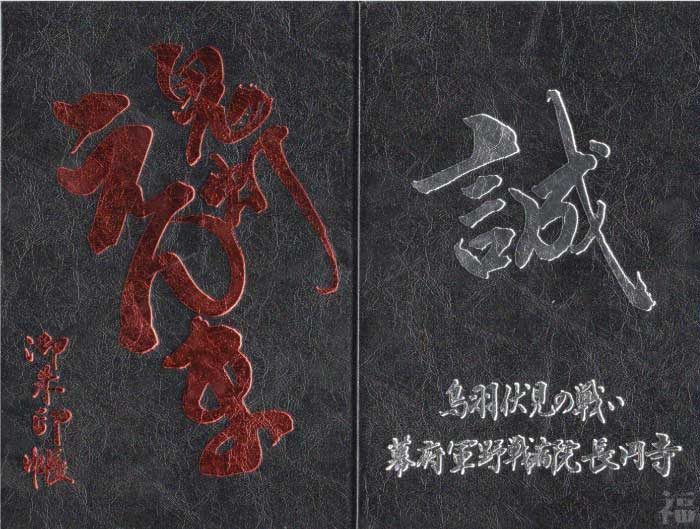 えんま
御朱印帳
誠
鳥羽伏見の戦い
幕府軍野戦病院長円寺